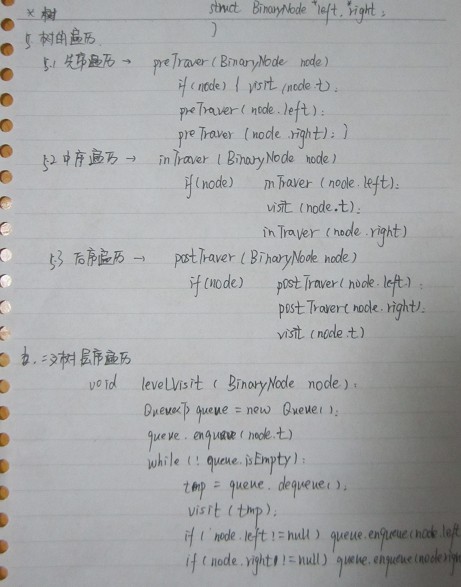 × 树 struct BinaryNode *left, *right;
}
5. 树的遍历
5.1 先序遍历 → preTraver (BinaryNode node)
if (node) { visit (node.t);
preTraver (node.left);
preTraver (node.right); }
5.2 中序遍历 → inTraver (BinaryNode node)
if(node) inTraver (node.left);
visit (node.t);
inTraver (node.right)
5.3 后序遍历 → postTraver (BinaryNode node)
if(node) postTraver (node.left);
postTraver (node.right);
visit (node.t)
6. 二叉树层序遍历
void levelVisit (BinaryNode node);
Queue<T> queue = new Queue();
queue.enqueue(node.t)
while (! queue.isEmpty);
tmp = queue.dequeue();
visit (tmp);
if (node.left != null) queue.enqueue(node.left
if (node.right != null) queue.enqueue(node.righ